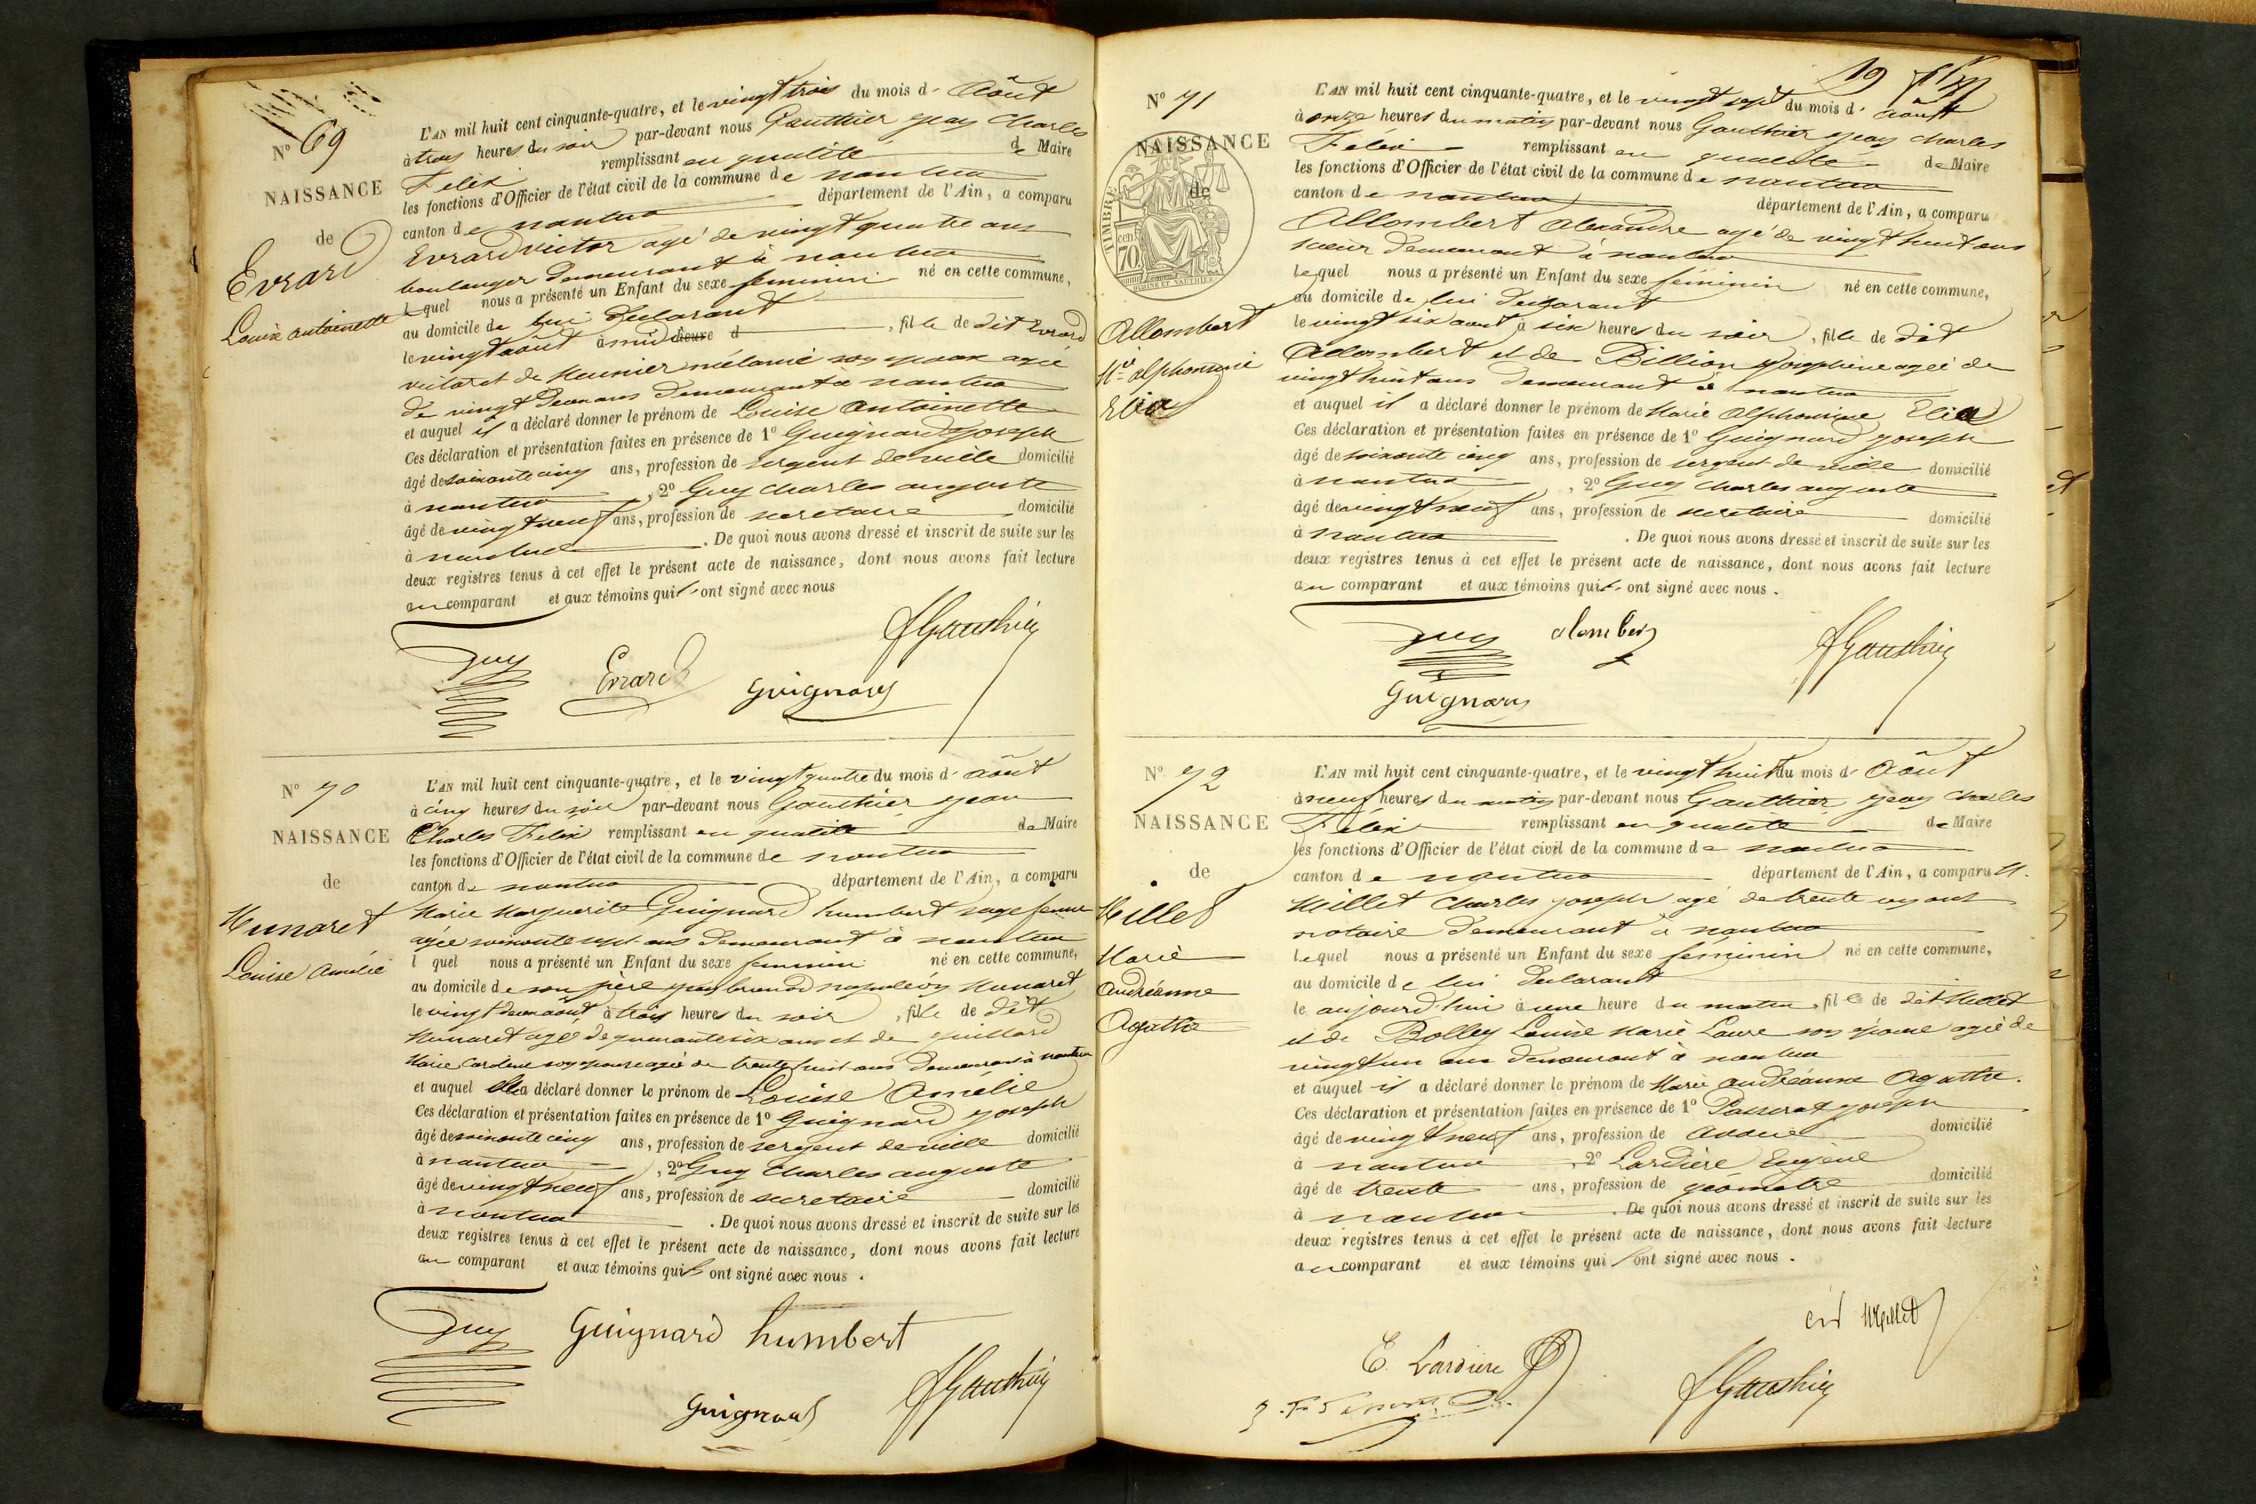 N° 69
NAISSANCE
de
Evrard
Louise antoinette
L'AN mil huit cent cinquante-quatre, et le vingt trois du mois d' Août
à trois heures du soir par-devant nous Gauthier jean Charles
Felix remplissant en qualité de Maire
les fonctions d'Officier de l'état civil de la commune de nantua
canton de nantua département de l'Ain, a comparu
Evrard victor agé de vingt quatre ans
boulanger demeurant à nantua
lequel nous a présenté un Enfant du sexe feminin né en cette commune,
au domicile de lui declarant
le vingt août à midi heure d , fille de dit Evrard
victor et de Meunier mélanie son epouse agée
de vingt deux ans demeurant à nantua
et auquel il a déclaré donner le prénom de Louise Antoinette
Ces déclaration et présentation faites en présence de 1° Guignard joseph
âgé de soixante cinq ans, profession de sergent de ville domicilié
à nantua , 2° Guy charles auguste
âgé de vingt neuf ans, profession de secretaire domicilié
à nantua . De quoi nous avons dressé et inscrit de suite sur les
deux registres tenus à cet effet le présent acte de naissance, dont nous avons fait lecture
au comparant et aux témoins qui ont signé avec nous
Guy Evrard Guignard Gauthier
N° 70
NAISSANCE
de
Munaret
Louise Amélie
L'AN mil huit cent cinquante-quatre, et le vingt quatre du mois d' Août
à cinq heures du soir par-devant nous Gauthier jean
Charles Felix remplissant en qualité de Maire
les fonctions d'Officier de l'état civil de la commune de nantua
canton de nantua département de l'Ain, a comparu
Marie Marguerite Guignard humbert sage femme
agée soixante sept ans demeurant à nantua
l quel nous a présenté un Enfant du sexe feminin né en cette commune,
au domicile de son père napoléon Munaret
le vingt deux août à trois heures du soir , fille de dit
Munaret agé de quarante six ans et de guillard
Marie Caroline son epouse agée de trente huit ans demeurant à nantua
et auquel elle a déclaré donner le prénom de Louise Amélie
Ces déclaration et présentation faites en présence de 1° Guignard joseph
âgé de soixante cinq ans, profession de sergent de ville domicilié
à nantua , 2° Guy Charles auguste
âgé de vingt neuf ans, profession de secretaire domicilié
à nantua . De quoi nous avons dressé et inscrit de suite sur les
deux registres tenus à cet effet le présent acte de naissance, dont nous avons fait lecture
au comparant et aux témoins qui ont signé avec nous .
Guy Guignard humbert
Guignard Gauthier
19
N° 71
NAISSANCE
de
TIMBRE
70
Allombert
Mie alphonsine
Eliza
L'AN mil huit cent cinquante-quatre, et le vingt sept du mois d' août
à onze heures du matin par-devant nous Gauthier jean charles
Félix remplissant en qualité de Maire
les fonctions d'Officier de l'état civil de la commune de nantua
canton de nantua département de l'Ain, a comparu
Allombert Alexandre agé de vingt huit ans
demeurant à nantua
lequel nous a présenté un Enfant du sexe féminin né en cette commune,
au domicile de lui declarant
le vingt six aout à six heures du soir , fille de dit
Allombert et de Billion josephine agée de
vingt huit ans demeurant à nantua
et auquel il a déclaré donner le prénom de Marie Alphonsine
Ces déclaration et présentation faites en présence de 1° Guignard joseph
âgé de soixante cinq ans, profession de sergent de ville domicilié
à nantua , 2° Guy charles auguste
âgé de vingt neuf ans, profession de secretaire domicilié
à nantua . De quoi nous avons dressé et inscrit de suite sur les
deux registres tenus à cet effet le présent acte de naissance, dont nous avons fait lecture
au comparant et aux témoins qui ont signé avec nous .
Guy Gauthier
Guignard
N° 72
NAISSANCE
de
Millet
Marie
Andréanne
Agathe
L'AN mil huit cent cinquante-quatre, et le vingt huit du mois d' Août
à neuf heures du matin par-devant nous Gauthier jean charles
Felix remplissant en qualité de Maire
les fonctions d'Officier de l'état civil de la commune de nantua
canton de nantua département de l'Ain, a comparu M.
Millet Charles joseph agé de trente ans
notaire demeurant à nantua
lequel nous a présenté un Enfant du sexe féminin né en cette commune,
au domicile de lui declarant
le aujourd'hui à une heure du matin , fille de dit Millet
et de Bolley Louise Marie Laure son épouse agée de
vingt un ans demeurant à nantua
et auquel il a déclaré donner le prénom de Marie andréanne Agathe.
Ces déclaration et présentation faites en présence de 1° Passerat joseph
âgé de vingt neuf ans, profession de avoué domicilié
à nantua , 2° Lardière Eugène
âgé de trente ans, profession de géomètre domicilié
à nantua . De quoi nous avons dressé et inscrit de suite sur les
deux registres tenus à cet effet le présent acte de naissance, dont nous avons fait lecture
au comparant et aux témoins qui ont signé avec nous .
Millet
E. Lardière
Gauthier